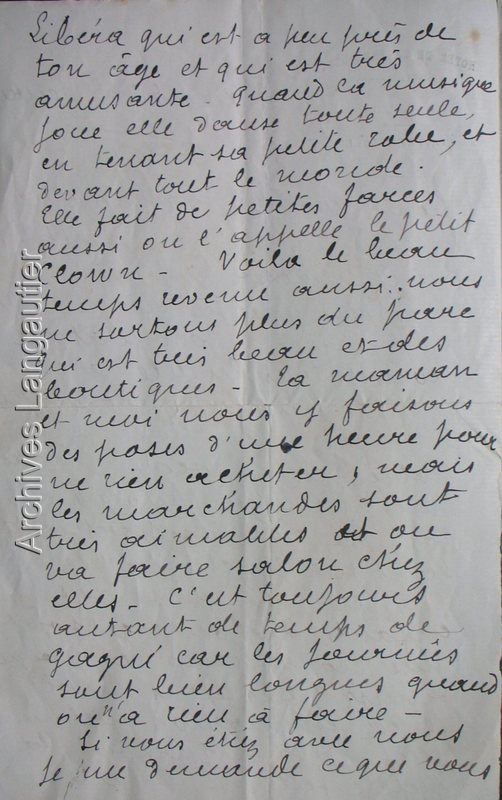 Libéra qui est a peu près de
ton âge et qui est très
amusante. Quand la musique
joue elle danse toute seule,
en tenant sa petite robe, et
devant tout le monde.
Elle fait de petites farces
aussi on l'appelle le petit
Clown - Voilà le beau
temps revenu aussi nous
ne sortons plus du parc
qui est très beau et des
boutiques - Ta maman
et moi nous y faisons
des poses d'une heure pour
ne rien acheter, mais
les marchandes sont
très aimables et on
va faire salon chez
elles - C'est toujours
autant de temps de
gagné car les journées
sont bien longues quand
on n'a rien à faire -
Si vous étiez avec nous
je me demande ce que vous
Archives Langautier